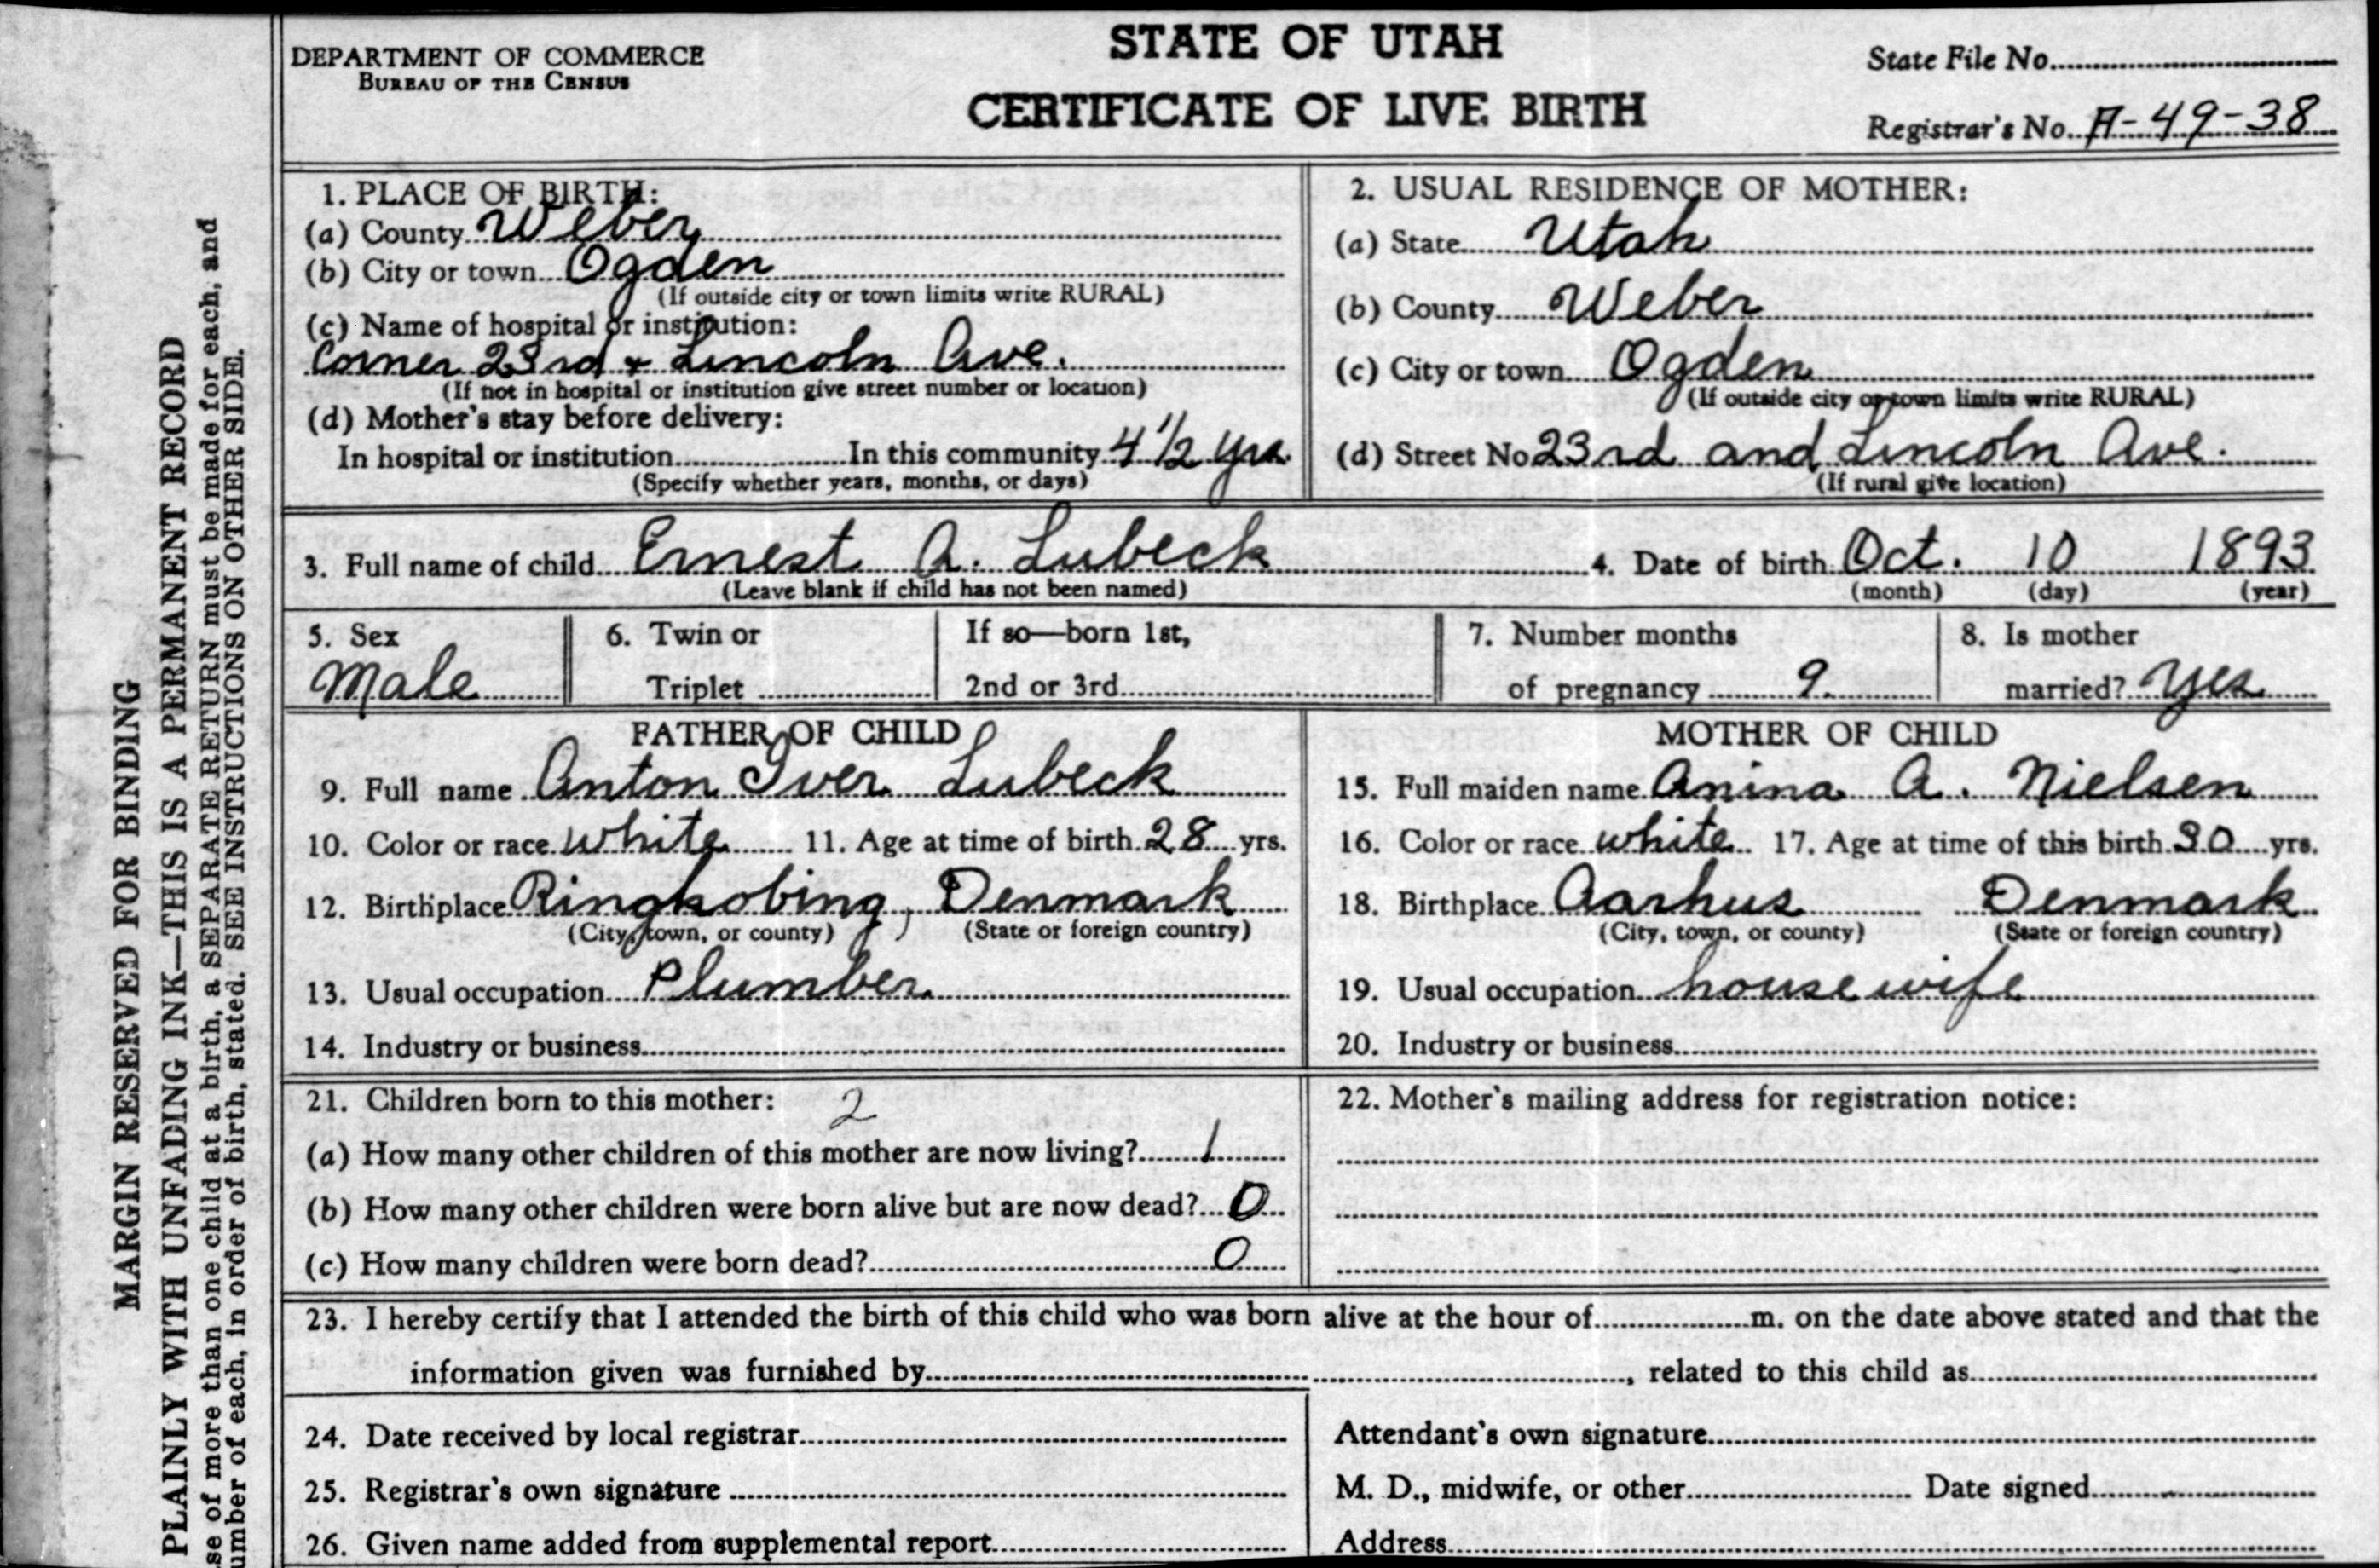 DEPARTMENT OF COMMERCE
BUREAU OF THE CENSUS
STATE OF UTAH
CERTIFICATE OF LIVE BIRTH
State File No.
Registrar's No. A-49-38
1. PLACE OF BIRTH:
(a) County Weber
(b) City or town Ogden
(If outside city or town limits write RURAL)
(c) Name of hospital or institution:
Corner 23rd & Lincoln Ave.
(If not in hospital or institution give street number or location)
(d) Mother's stay before delivery:
In hospital or institution In this community 4 1/2 yrs.
(Specify whether years, months, or days)
2. USUAL RESIDENCE OF MOTHER:
(a) State Utah
(b) County Weber
(c) City or town Ogden
(If outside city or town limits write RURAL)
(d) Street No 23rd and Lincoln Ave.
(If rural give location)
3. Full name of child Ernest A. Lubeck 4. Date of birth Oct. 10 1893
(Leave blank if child has not been named) (month) (day) (year)
5. Sex
Male
6. Twin or
Triplet
If so—born 1st,
2nd or 3rd
7. Number months
of pregnancy 9.
8. Is mother
married? Yes
FATHER OF CHILD
9. Full name Anton Iver Lubeck
10. Color or race White 11. Age at time of birth 28 yrs.
12. Birthplace Ringkobing, Denmark
(City, town, or county) (State or foreign country)
13. Usual occupation Plumber
14. Industry or business
MOTHER OF CHILD
15. Full maiden name Anina A. Nielsen
16. Color or race white 17. Age at time of this birth 30 yrs.
18. Birthplace Aarhus Denmark
(City, town, or county) (State or foreign country)
19. Usual occupation housewife
20. Industry or business
21. Children born to this mother: 2
(a) How many other children of this mother are now living? 1
(b) How many other children were born alive but are now dead? 0
(c) How many children were born dead? 0
22. Mother's mailing address for registration notice:
23. I hereby certify that I attended the birth of this child who was born alive at the hour of m. on the date above stated and that the
information given was furnished by , related to this child as
24. Date received by local registrar
25. Registrar's own signature
26. Given name added from supplemental report
Attendant's own signature
M. D., midwife, or other Date signed
Address
MARGIN RESERVED FOR BINDING
PLAINLY WITH UNFADING INK—THIS IS A PERMANENT RECORD
of more than one child at a birth, a SEPARATE RETURN must be made for each, and
of each, in order of birth, stated. SEE INSTRUCTIONS ON OTHER SIDE.